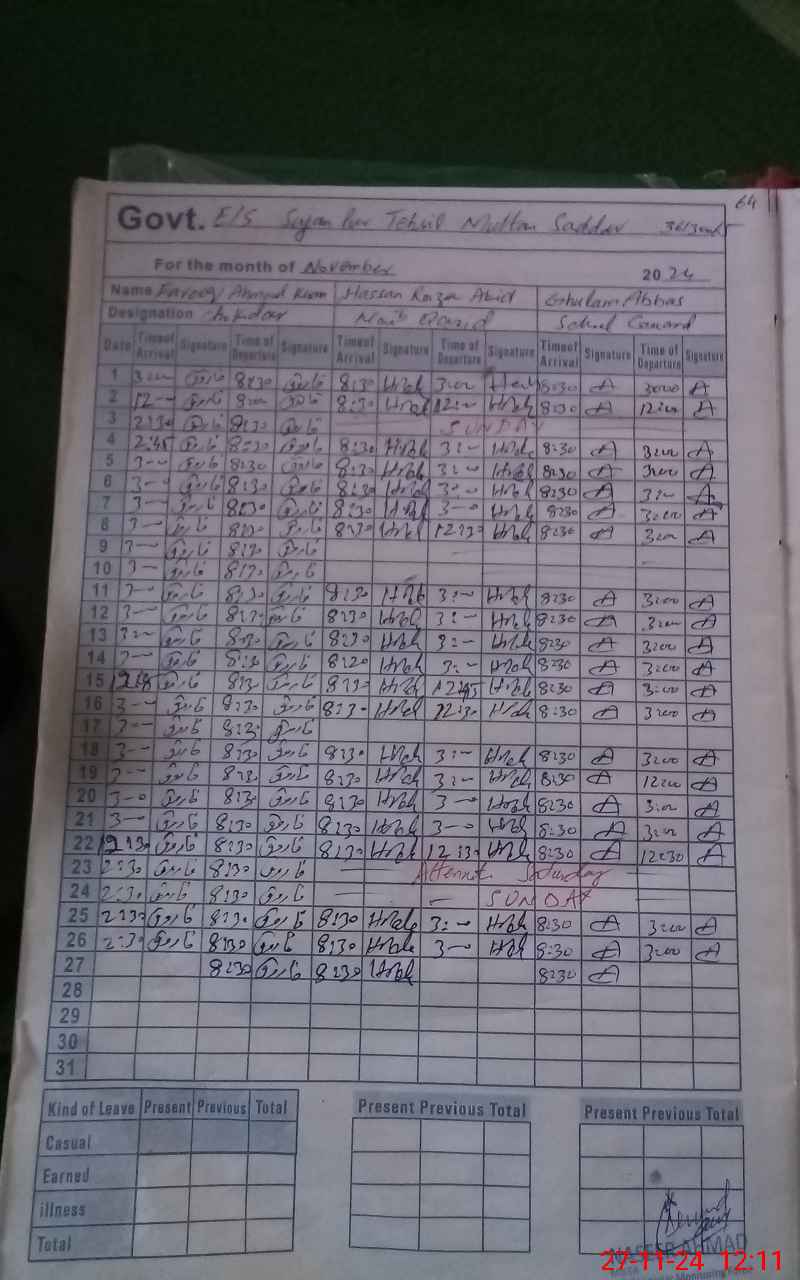 64
Govt. E/S Sajan Pur Tehsil Multan Saddar
For the month of November 2024
Name Farooq Ahmad Khan Hassan Raza Abid Ghulam Abbas
Designation Chokidar Naib Qasid School Guard
Date Time of Arrival Signature Time of Departure Signature Time of Arrival Signature Time of Departure Signature Time of Arrival Signature Time of Departure Signature
1 3:00 فاروق 8:30 فاروق 8:30 3:00 8:30 A 3:00 A
2 12:00 فاروق 8:00 فاروق 8:30 12:00 8:30 A 12:00 A
3 2:30 فاروق 8:30 فاروق — SUNDAY
4 2:45 فاروق 8:30 فاروق 8:30 3:00 8:30 A 3:00 A
5 3:00 فاروق 8:30 فاروق 8:30 3:00 8:30 A 3:00 A
6 3:00 فاروق 8:30 فاروق 8:30 3:00 8:30 A 3:00 A
7 3:00 فاروق 8:30 فاروق 8:30 3:00 8:30 A 3:00 A
8 3:00 فاروق 8:30 فاروق 8:30 12:30 8:30 A 3:00 A
9 3:00 فاروق 8:30 فاروق
10 3:00 فاروق 8:30 فاروق
11 3:00 فاروق 8:30 فاروق 8:30 3:00 8:30 A 3:00 A
12 3:00 فاروق 8:30 فاروق 8:30 3:00 8:30 A 3:00 A
13 3:00 فاروق 8:30 فاروق 8:30 3:00 8:30 A 3:00 A
14 3:00 فاروق 8:30 فاروق 8:30 3:00 8:30 A 3:00 A
15 فاروق 8:30 فاروق 8:30 12:45 8:30 A 3:00 A
16 3:00 فاروق 8:30 فاروق 8:30 12:30 8:30 A 3:00 A
17 3:00 فاروق 8:30 فاروق
18 3:00 فاروق 8:30 فاروق 8:30 3:00 8:30 A 3:00 A
19 3:00 فاروق 8:30 فاروق 8:30 3:00 8:30 A 12:00 A
20 3:00 فاروق 8:30 فاروق 8:30 3:00 8:30 A 3:00 A
21 3:00 فاروق 8:30 فاروق 8:30 3:00 8:30 A 3:00 A
22 12:30 فاروق 8:30 فاروق 8:30 12:30 8:30 A 12:30 A
23 2:30 فاروق 8:30 فاروق — Alternate Saturday
24 2:30 فاروق 8:30 فاروق — SUNDAY
25 2:30 فاروق 8:30 فاروق 8:30 3:00 8:30 A 3:00 A
26 2:30 فاروق 8:30 فاروق 8:30 3:00 8:30 A 3:00 A
27 8:30 فاروق 8:30 8:30 A
28
29
30
31
Kind of Leave Present Previous Total Present Previous Total Present Previous Total
Casual
Earned
illness
Total
NASEER AHMAD
27-11-24 12:11